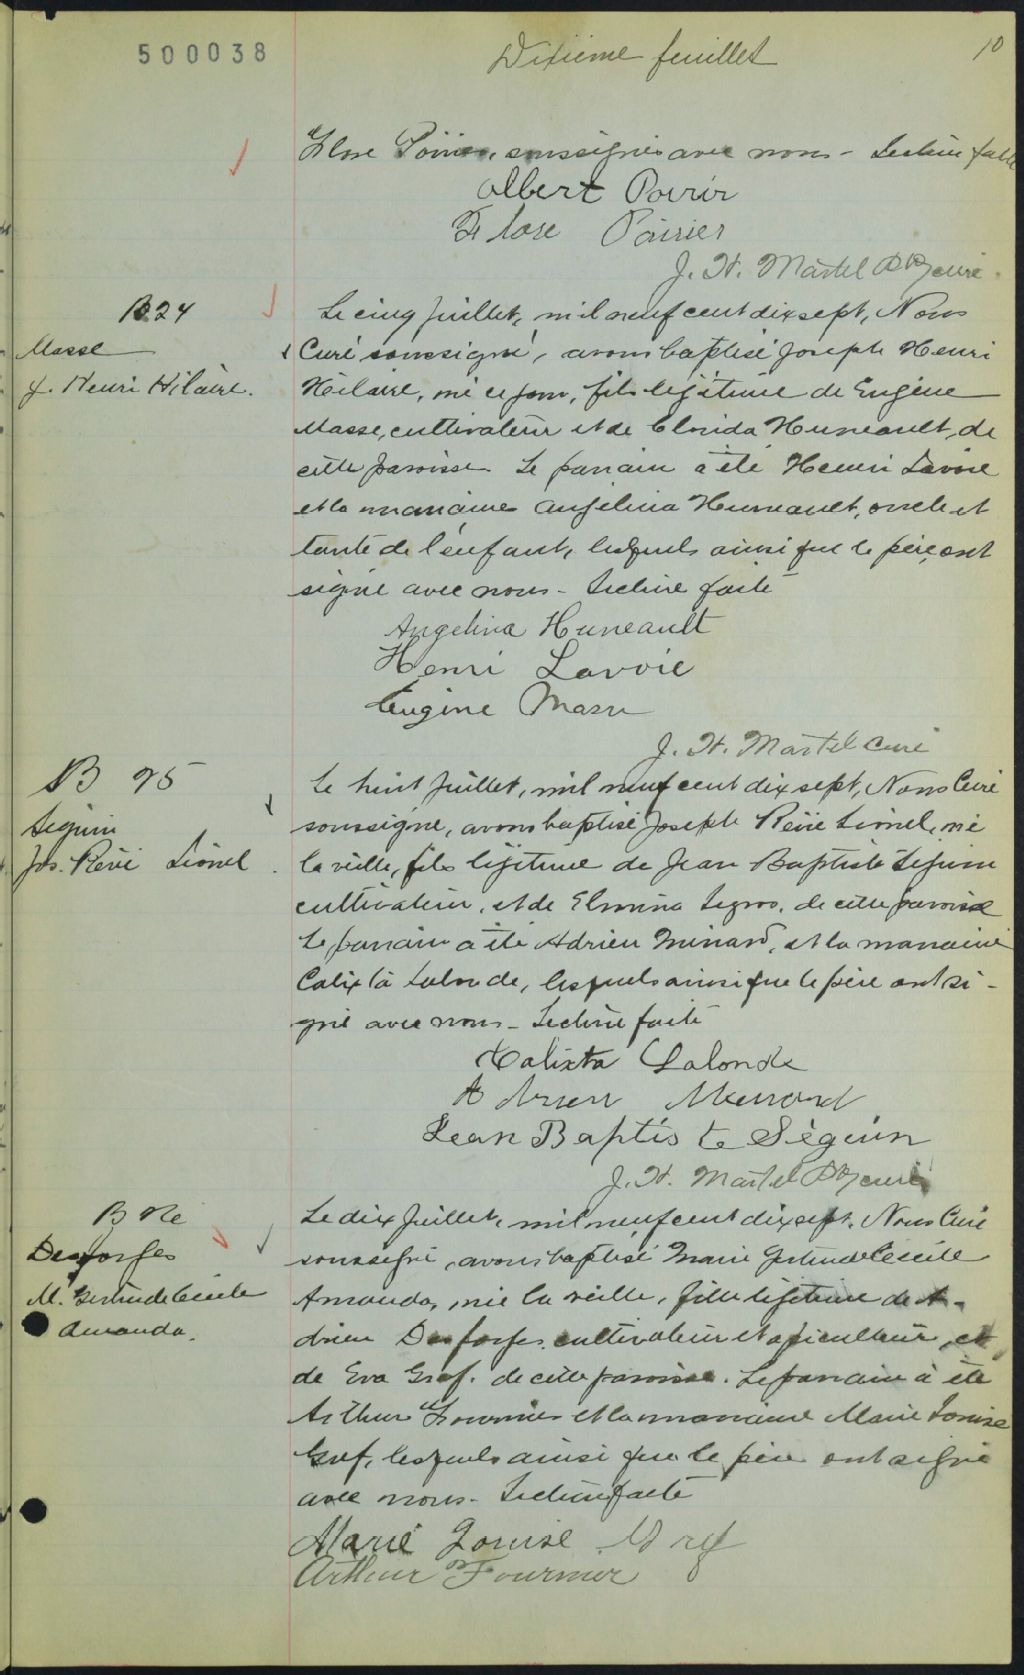 500038
Dixième feuillet
10
Flore Poirier, soussignés avec nous - Lecture faite
Albert Poirir
Flore Poirier
J. H. Martel Ptre curé
B24
Masse
J. Henri Hilaire.
Le cinq Juillet, mil neuf cent dix sept, Nous
Curé soussigné, avons baptisé Joseph Henri
Hilaire, né ce jour, fils légitime de Eugène
Masse, cultivateur et de Clorida Huneault, de
cette paroisse. Le parrain a été Henri Lavoie
et la marraine Angelina Huneault, oncle et
tante de l'enfant, lesquels ainsi que le père, ont
signé avec nous - Lecture faite
Angelina Huneault
Henri Lavoie
Eugène Masse
J. H. Martel curé
B 25
Seguin
Jos. Réné Lionel
Le huit Juillet, mil neuf cent dix sept, Nous Curé
soussigné, avons baptisé Joseph Réné Lionel, né
la veille, fils légitime de Jean Baptiste Seguin
cultivateur, et de Elmina Legros, de cette paroisse
Le parrain a été Adrien Minard, et la marraine
Calixta Lalonde, lesquels ainsi que le père ont si-
gné avec nous - Lecture faite
Calixta Lalonde
Adrien Menard
Jean Baptiste Séguin
J. H. Martel Ptre curé
B 26
Desforges
M. Gertrude Cécile
Amanda.
Le dix Juillet, mil neuf cent dix sept, Nous Curé
soussigné, avons baptisé Marie Gertrude Cécile
Amanda, née la veille, fille légitime de A-
drien Desforges, cultivateur et apiculteur, et
de Eva Graf. de cette paroisse. Le parrain a été
Arthur Fournier et la marraine Marie Louise
Graf, lesquels ainsi que le père ont signé
avec nous - Lecture faite
Marie Louise Graf
Arthur Fournier